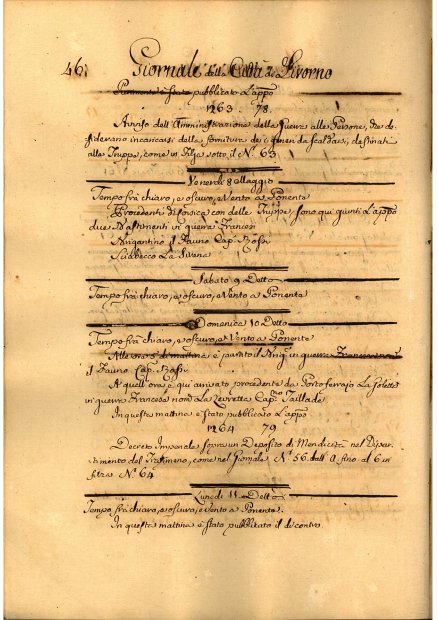 46.
Giornale della Città di Livorno
Parimente è stato pubblicato L'appo
1263 78
Avviso dell'Amministrazione della Guerra alle Persone, che de-
siderano incaricarsi della fornitura dei generi da scaldarsi, destinati
alle Truppe, come in Filza sotto il N.° 63
Venerdì 8 Maggio
Tempo frà chiaro, e oscuro, e Vento a Ponente
Procedenti di Corsica con delle Truppe, sono qui giunti L'appo
due Bastimenti in guerra Francesi
Brigantino il Fauno Cap.
Sciabecco La Sirena
Sabato 9 Detto
Tempo frà chiaro, e oscuro, e Vento a Ponente
Domenica 10 Detto
Tempo frà chiaro, e oscuro, e Vento a Ponente
Alle ore 5 di mattina è partito il Brig.° in guerra Francese
il Fauno Cap.
A quell'ora è qui arrivato procedente da Porto ferrajo La Goletta
in guerra Francese nom.a La Levretta Cap.no Taillade
In questa mattina è stato pubblicato L'appo
1264 79
Decreto Imperiale sopra un Deposito di Mendicità nel Dipar-
timento del Trasimeno, come nel Giornale N.° 56. dall' A. fino al 6 in
filza N.° 64
Lunedì 11 Detto
Tempo frà chiaro, e oscuro, e Vento a Ponente.
In questa mattina è stato pubblicato il di contro